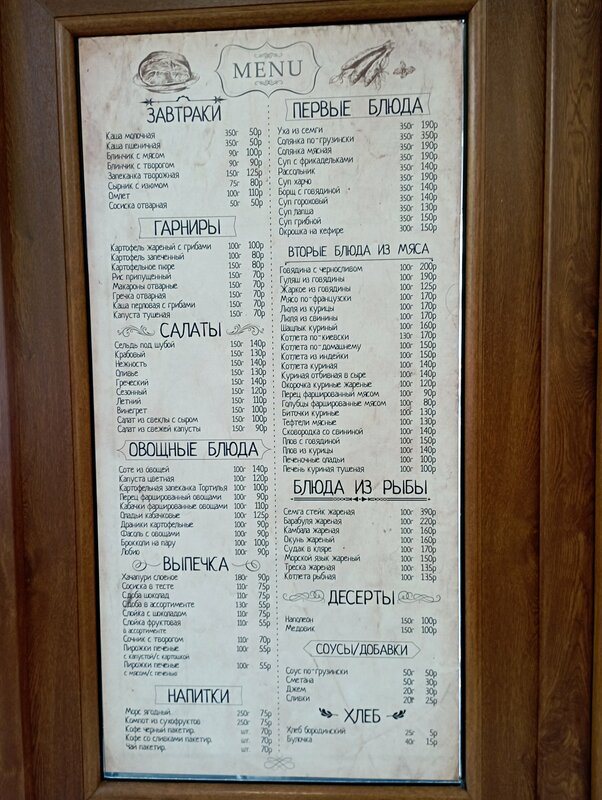 MENU
ЗАВТРАКИ
Каша молочная 350г 50р
Каша пшеничная 350г 50р
Блинчик с мясом 90г 100р
Блинчик с творогом 90г 90р
Запеканка творожная 150г 125р
Сырник с изюмом 75г 80р
Омлет 100г 110р
Сосиска отварная 50г 50р
ГАРНИРЫ
Картофель жареный с грибами 100г 100р
Картофель запеченный 100г 80р
Картофельное пюре 150г 80р
Рис припущенный 150г 70р
Макароны отварные 150г 70р
Гречка отварная 150г 70р
Каша перловая с грибами 150г 70р
Капуста тушеная 150г 70р
САЛАТЫ
Сельдь под шубой 150г 140р
Крабовый 150г 130р
Нежность 150г 140р
Оливье 150г 130р
Греческий 150г 140р
Сезонный 150г 120р
Летний 150г 110р
Винегрет 150г 100р
Салат из свеклы с сыром 150г 100р
Салат из свежей капусты 150г 90р
ОВОЩНЫЕ БЛЮДА
Соте из овощей 100г 140р
Капуста цветная 100г 120р
Картофельная запеканка Тортилья 100г 100р
Перец фаршированный овощами 100г 90р
Кабачки фаршированные овощами 100г 110р
Оладьи кабачковые 100г 125р
Драники картофельные 100г 90р
Фасоль с овощами 100г 90р
Брокколи на пару 100г 100р
Лобио 100г 90р
ВЫПЕЧКА
Хачапури слоеное 180г 90р
Сосиска в тесте 110г 75р
Сдоба шоколад 110г 75р
Сдоба в ассортименте 130г 55р
Слойка с шоколадом 110г 75р
Слойка фруктовая 110г 55р
в ассортименте
Сочник с творогом 110г 70р
Пирожки печеные 100г 55р
с капустой/с картошкой
Пирожки печеные 100г 55р
с мясом/с печенью
НАПИТКИ
Морс ягодный 250г 75р
Компот из сухофруктов 250г 75р
Кофе черный пакетир. шт. 70р
Кофе со сливками пакетир. шт. 70р
Чай пакетир. шт. 70р
ПЕРВЫЕ БЛЮДА
Уха из семги 350г 190р
Солянка по-грузински 350г 350р
Солянка мясная 350г 190р
Суп с фрикадельками 350г 190р
Рассольник 350г 140р
Суп харчо 350г 190р
Борщ с говядиной 350г 140р
Суп гороховый 350г 140р
Суп лапша 350г 130р
Суп грибной 350г 150р
Окрошка на кефире 300г 150р
ВТОРЫЕ БЛЮДА ИЗ МЯСА
Говядина с черносливом 100г 200р
Гуляш из говядины 100г 190р
Жаркое из говядины 100г 125р
Мясо по-французски 100г 170р
Люля из курицы 100г 170р
Люля из свинины 100г 170р
Шашлык куриный 100г 160р
Котлета по-киевски 130г 170р
Котлета по-домашнему 100г 150р
Котлета из индейки 100г 150р
Котлета куриная 100г 140р
Куриная отбивная в сыре 100г 140р
Окорочка куриные жареные 100г 120р
Перец фаршированный мясом 100г 90р
Голубцы фаршированные мясом 100г 80р
Биточки куриные 100г 130р
Тефтели мясные 100г 130р
Сковородка со свининой 100г 140р
Плов с говядиной 100г 150р
Плов из курицы 100г 140р
Печеночные оладьи 100г 100р
Печень куриная тушеная 100г 100р
БЛЮДА ИЗ РЫБЫ
Семга стейк жареная 100г 390р
Барабуля жареная 100г 220р
Камбала жареная 100г 160р
Окунь жареный 100г 160р
Судак в кляре 100г 170р
Морской язык жареный 100г 150р
Треска жареная 100г 135р
Котлета рыбная 100г 135р
ДЕСЕРТЫ
Наполеон 150г 100р
Медовик 150г 100р
СОУСЫ/ДОБАВКИ
Соус по-грузински 50г 50р
Сметана 50г 30р
Джем 20г 30р
Сливки 20г 25р
ХЛЕБ
Хлеб бородинский 25г 5р
Булочка 40г 15р